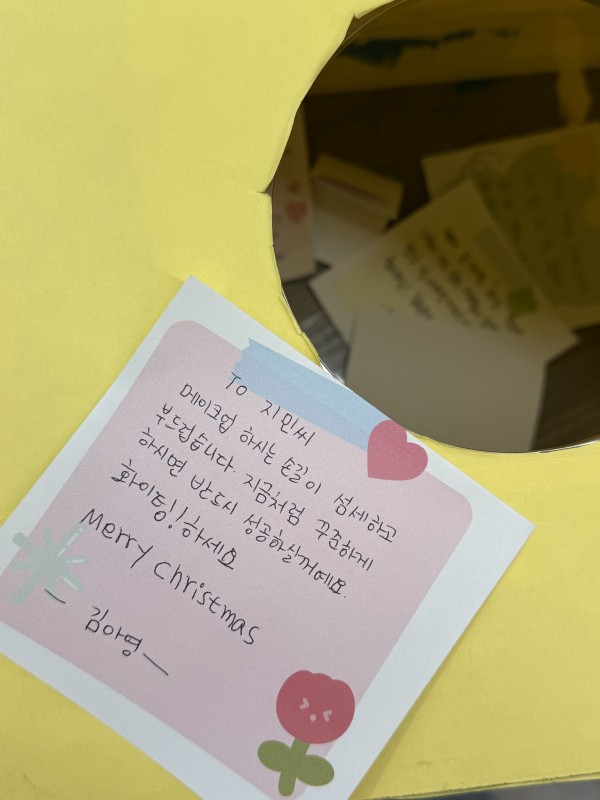 To 지민씨
메이크업 하시는 손길이 섬세하고
부드럽습니다. 지금처럼 꾸준하게
하시면 반드시 성공하실거예요.
화이팅!! 하세요
Merry Christmas
— 김아영 —